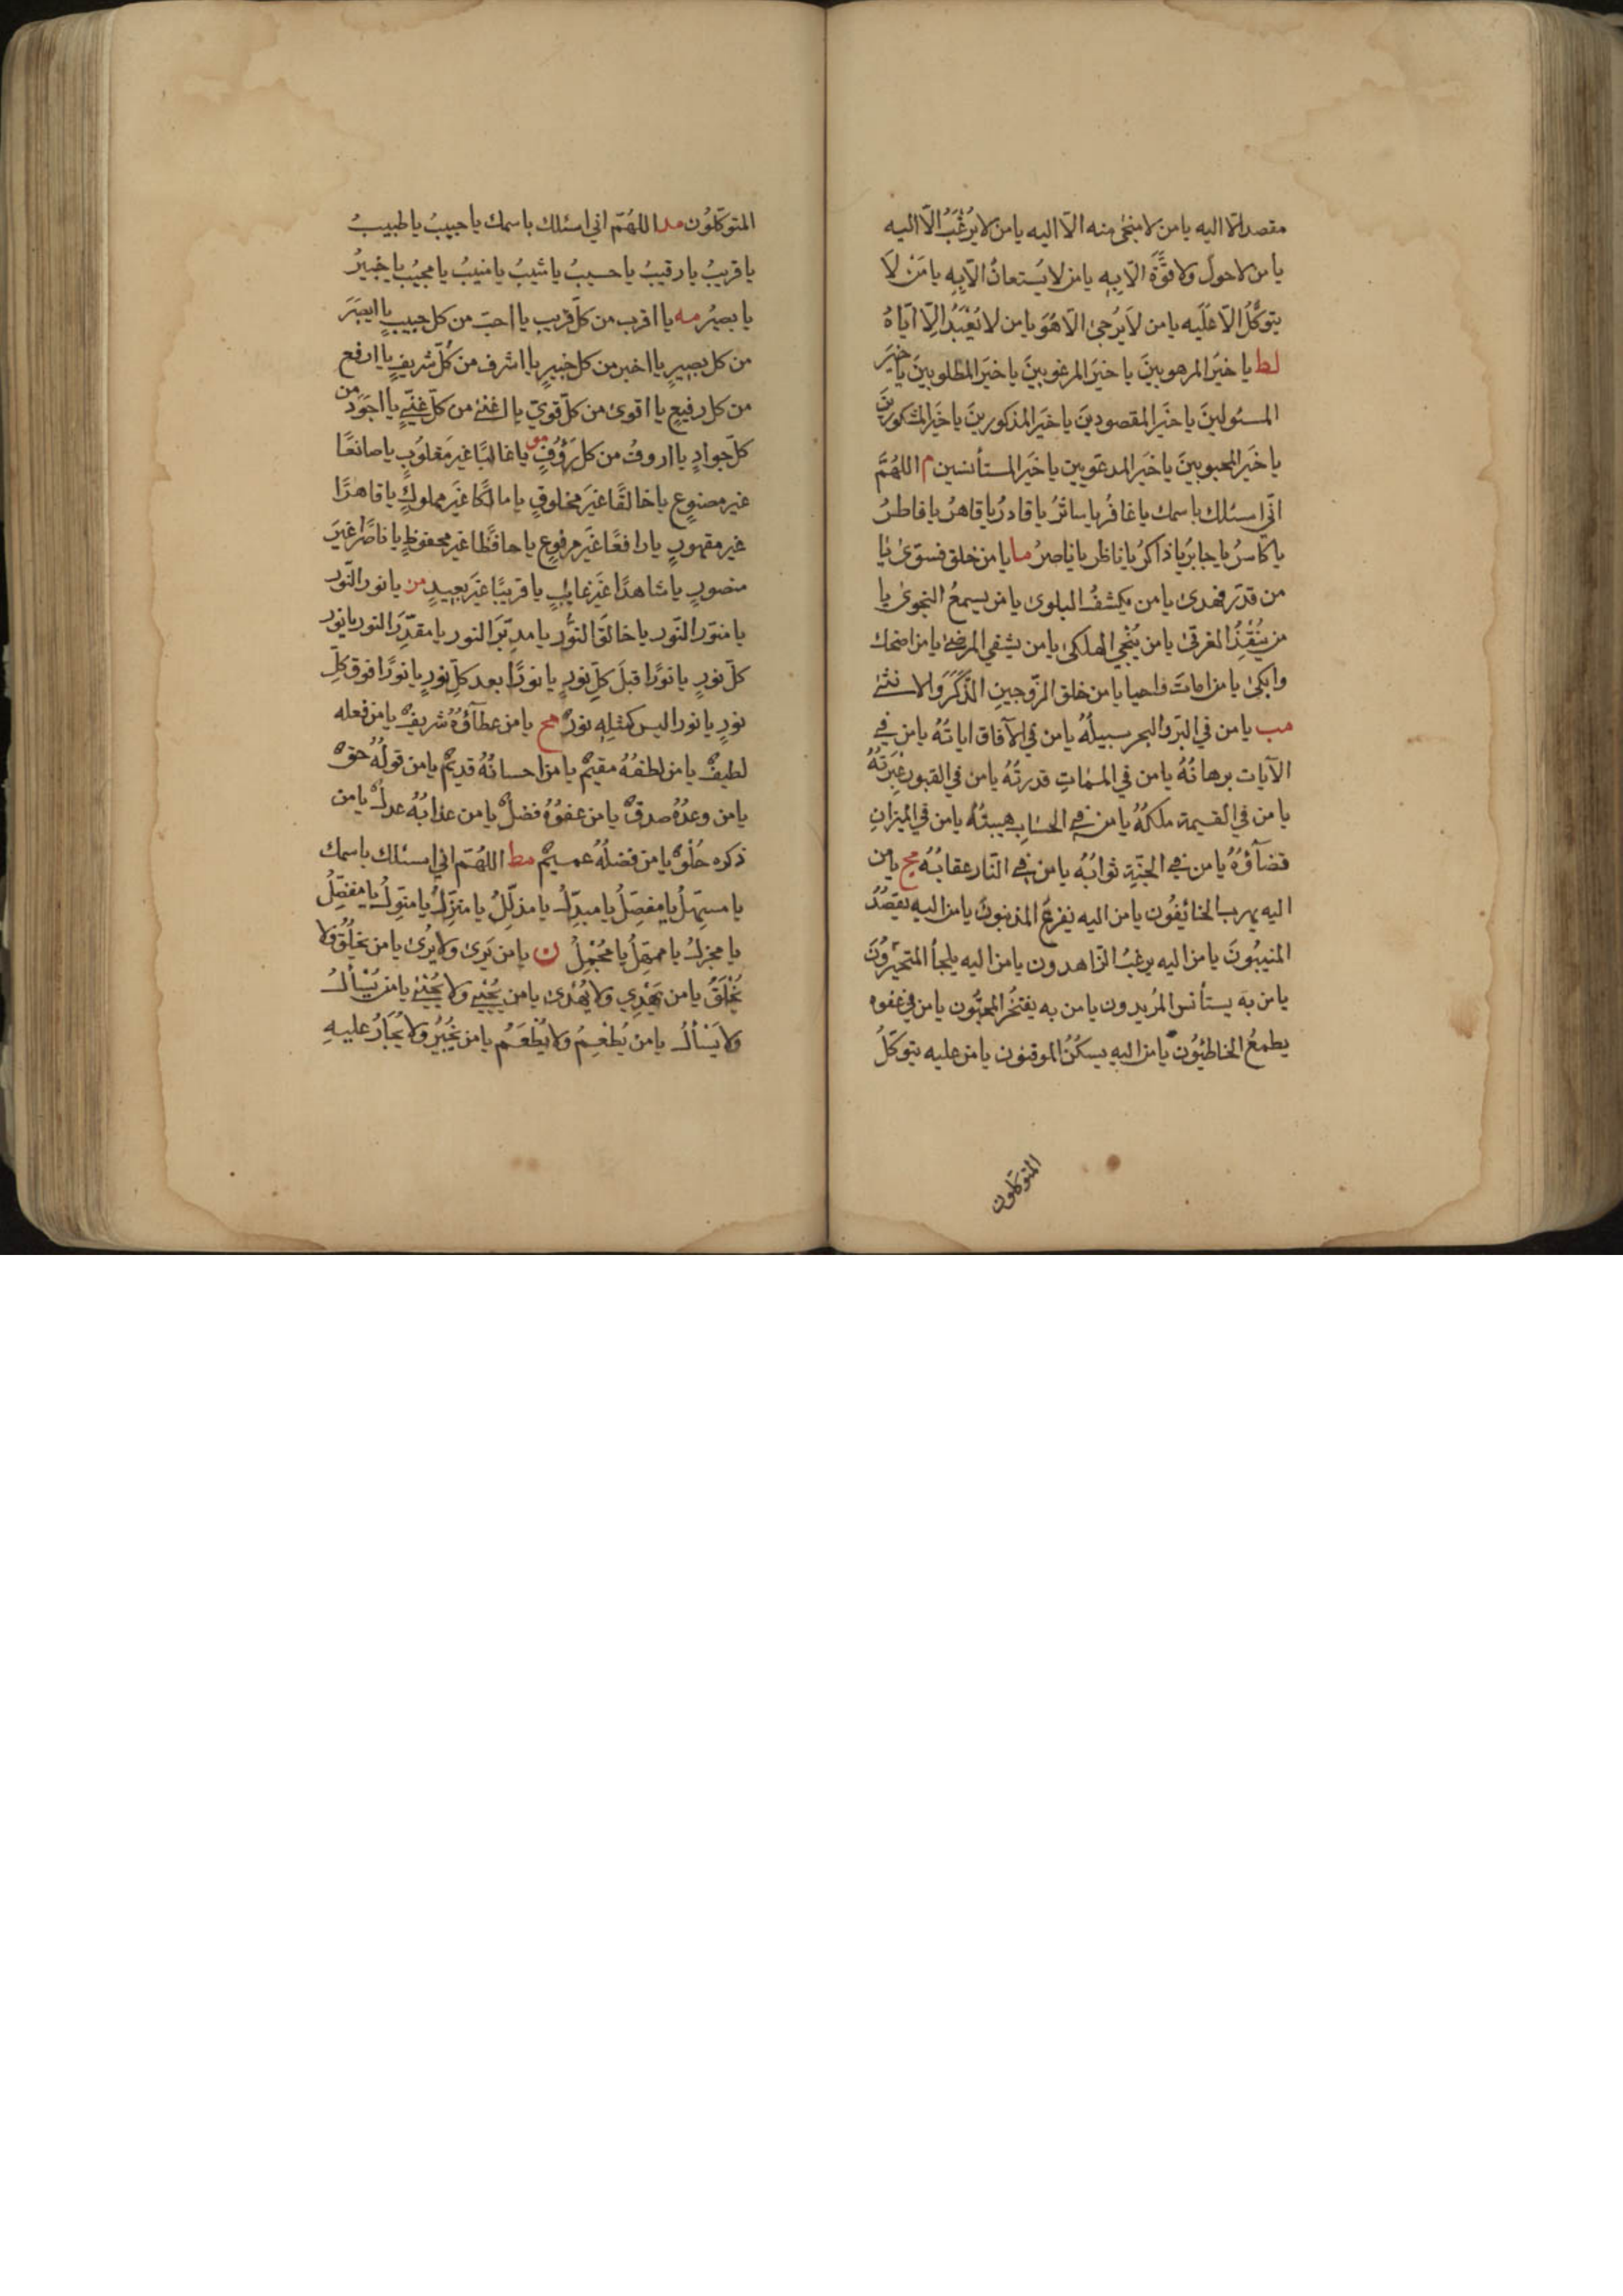 مقصد الّا اليه يا من لا منجى منه الّا اليه يا من لا يُرْغَبُ الّا اليه
يا من لا حولَ ولا قوَّةَ الّا بِهِ يا من لا يُستعانُ الّا بِهِ يا مَنْ لَا
يتوكّلُ الّا عليه يا من لَا يُرجىٰ الّا هُوَ يا من لا يُعْبَدُ اِلّا ايّاهُ
لط يا خيَرَ المرهوبينَ يا خيَرَ المرغوبينَ يا خيَرَ المطلوبينَ يا خيرَ
المسئولينَ يا خيَرَ المقصودينَ يا خيَرَ المذكورينَ يا خيَرَ المشكورينَ
يا خيَر المحبوبينَ يا خيَر المدعوّين يا خيَر المستأنسين م اللهُمَّ
انّي اسئلك باسمك يا غافرُ يا ساترُ يا قادرُ يا قاهرُ يا فاطرُ
يا كاسرُ يا جابرُ يا ذاكرُ يا ناظر يا ناصرُ ما يا من خلق فسوّىٰ يا
من قدّر فهدىٰ يا من يكشفُ البلوىٰ يا من يسمعُ النجوىٰ يا
من يُنْقِذُ الغرقىٰ يا من يُنْجي الهلكىٰ يا من يشفي المرضىٰ يا من اضحك
وابكىٰ يا من اماتَ واحيا يا من خلق الزّوجينِ الذَّكَرَ والانثىٰ
مب يا من في البرّ والبحر سبيلُهُ يا من في الآفاق اياتُهُ يا من في
الآيات برهانُهُ يا من في الممات قدرتُهُ يا من في القبور عِبَرتُهُ
يا من في القيمة ملكُهُ يا من في الحسٰابِ هيبتُهُ يا من في الميزانِ
قضآؤُهُ يا من في الجنّةِ ثوابُهُ يا من في النّار عقابُهُ مج يا من
اليه يهرب الخائفُون يا من اليه يفزعُ المذنبونَ يا من اليه يقصُدُ
المنيبُونَ يا من اليه يرغبُ الزّاهدون يا من اليه يلجأ المتحيّرُونَ
يا من به يستأنس المُريدون يا من به يفتخرُ المحبُّون يا من في عفوه
يطمعُ الخاطئِوُن يا من اليه يسكنُ الموقنون يا من عليه يتوكّلُ
المتوكلون
المتوكّلُون مد اللهُمّ اني اسئلك باسمك يا حبيبُ يا طبيبُ
يا قريبُ يا رقيبُ يا حسيبُ يا مثيبُ يا منيبُ يا مجيبُ يا خبيرُ
يا بصيرُ مه يا اقرب من كلّ قريب يا احبّ من كل حبيبٍ يا ابصَرَ
من كل بصيرٍ يا اخبر من كل خبيرٍ يا اشرف من كُلّ شريفٍ يا ارفع
من كل رفيعٍ يا اقوىٰ من كلّ قويّ يا اغنىٰ من كلّ غنيٍّ يا اجوَد من
كلّ جوادٍ يا ارءوفُ من كل رَؤُفٍ مو يا غالبًا غيرَ مغلوُبٍ يا صانعًا
غير مصنوعٍ يا خالقًا غيَر مخلوقٍ يا مالكًا غيَر مملوكٍ يا قاهرًا
غير مقهورٍ يا رافعًا غيَر مرفوعٍ يا حافظًا غير محفوظٍ يا ناصرًا غيَر
منصورٍ يا شاهدًا غيَر غايبٍ يا قريبًا غيَر بعيدٍ مز يا نور النّور
يا منوّر النّور يا خالقَ النُّور يا مدبّرَ النور يا مقدِّرَ النور يا نور
كلّ نورٍ يا نورًا قبلَ كلِّ نورٍ يا نورًا بعد كلِّ نورٍ يا نورًا فوق كلّ
نورٍ يا نورا ليس كمثلِهِ نورٌ مح يا من عطآؤُهُ شريفٌ يا من فعله
لطيفٌ يا من لطفُهُ مقيمٌ يا من احسانُهُ قديمٌ يا من قولُهُ حقٌ
يا من وعدُهُ صدقٌ يا من عفوُهُ فضلٌ يا من عذابُهُ عدلٌ يا من
ذكره حُلْوٌ يا من فضلُهُ عميمٌ مط اللهُمّ اني اسئلك باسمك
يا مسهّلُ يا مفصّلُ يا مبدّلُ يا مذلّلُ يا منزّلُ يا منوّلُ يا مفضّلُ
يا مجزلُ يا ممهّلُ يا مُجْمِلُ ن يا من يَرىٰ ولا يُرىٰ يا من يخلُقُ ولا
يُخْلَقُ يا من يَهْدِي ولا يُهْدىٰ يا من يُحْيي ولا يُحْيىٰ يا من يُسْألُ
ولا يَسْألُ يا من يُطْعِمُ ولا يُطْعَمُ يا من يُجْيرُ ولا يُجَارُ عليهِ